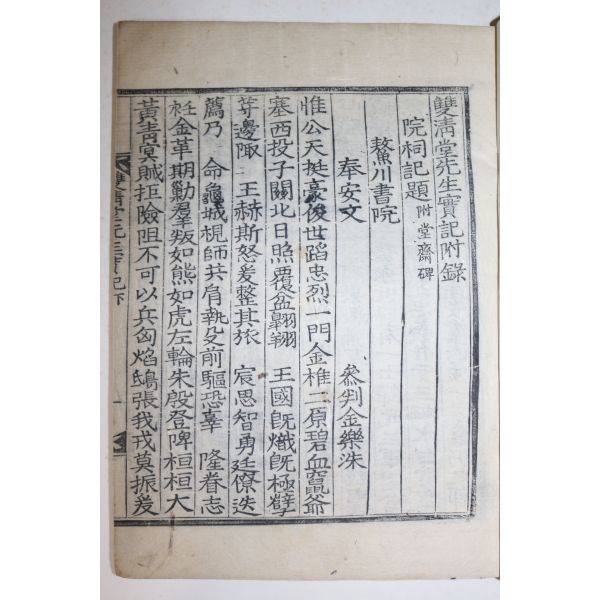 雙淸堂先生實記附錄
院祠記題附堂齋碑
鰲川書院
奉安文 叅判金樂洙
惟公天挺豪俊世蹈忠烈一門金椎二原碧血竄爺
塞西投子關北日照覆盆翺翔 王國旣熾旣極孼
芽邊陬 王赫斯怒爰整其旅 宸思智勇廷僚迭
薦乃 命龜城梘師共肩執殳前驅恐辜 隆眷志
衽金革期勦羣叛如熊如虎左輪朱殷登陴桓桓大
黃靑冥賊拒險阻不可以兵匈焰鴟張我戎莫振爰
雙淸堂先生實記下
一